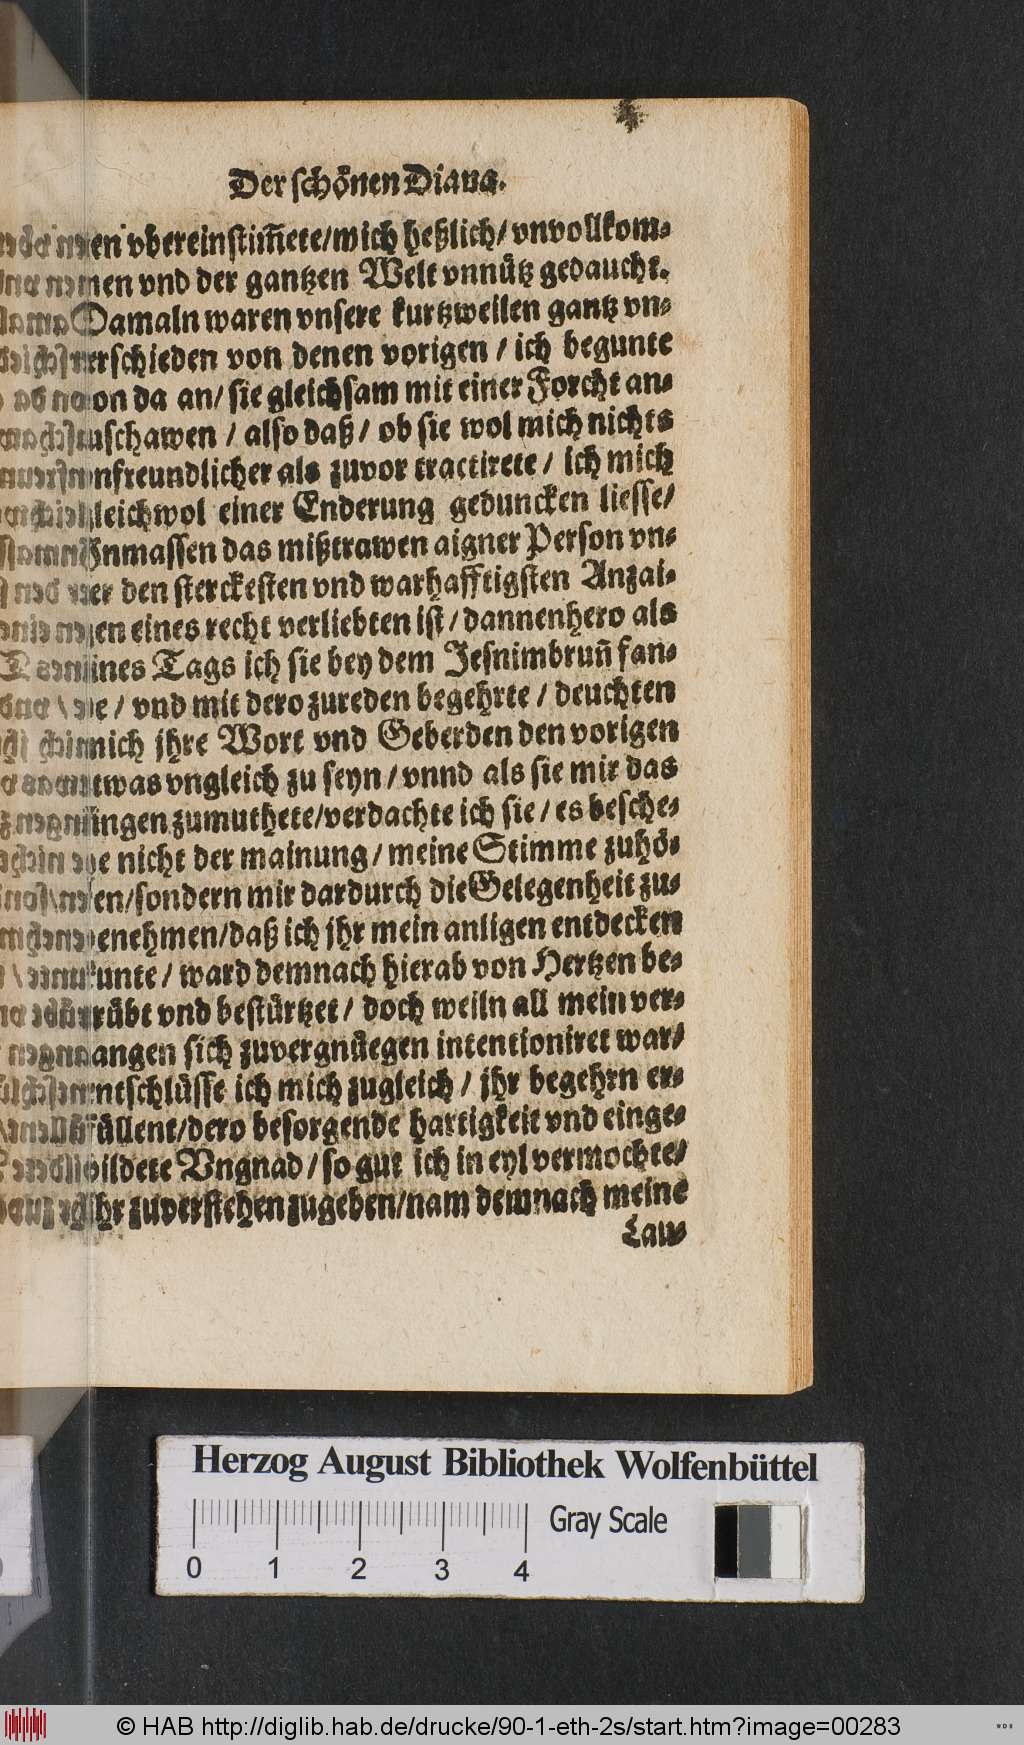 Der schönen Diana.
en vbereinstim̃ete/mich heßlich/ vnvollkom⸗
men vnd der gantzen Welt vnnütz gedaucht.
Damaln waren vnsere kurtzweilen gantz vn⸗
verschieden von denen vorigen / ich begunte
von da an/ sie gleichsam mit einer Forcht an⸗
zuschawen / also daß / ob sie wol mich nichts
vnfreundlicher als zuvor tractirete / ich mich
gleichwol einer Enderung geduncken liesse/
Inmassen das mißtrawen aigner Person vn⸗
ter den sterckesten vnd warhafftigsten Anzai⸗
gen eines recht verliebten ist / dannenhero als
eines Tags ich sie bey dem Jesnimbruñ fan⸗
de / vnd mit dero zureden begehrte / deuchten
mich jhre Wort vnd Geberden den vorigen
etwas vngleich zu seyn / vnnd als sie mir das
singen zumuthete/verdachte ich sie / es besche⸗
he nicht der mainung / meine Stimme zuhö⸗
ren/sondern mir dardurch die Gelegenheit zu⸗
benehmen/daß ich jhr mein anligen entdecken
kunte / ward demnach hierab von Hertzen be⸗
trübt vnd bestürtzet / doch weiln all mein ver⸗
langen sich zuvergnüegen intentioniret war/
entschlüsse ich mich zugleich / jhr begehrn er⸗
füllent/dero besorgende hartigkeit vnd einge⸗
bildete Vngnad / so gut ich in eyl vermochte/
jhr zuverstehen zugeben/nam demnach meine
Lau⸗
Herzog August Bibliothek Wolfenbüttel
Gray Scale
0 1 2 3 4
© HAB http://diglib.hab.de/drucke/90-1-eth-2s/start.htm?image=00283